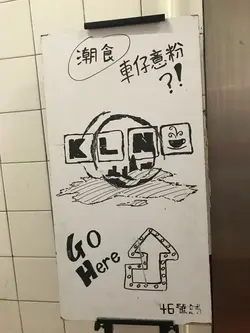 潮食
車仔意粉
?!
KLN
GO
Here
46號舖